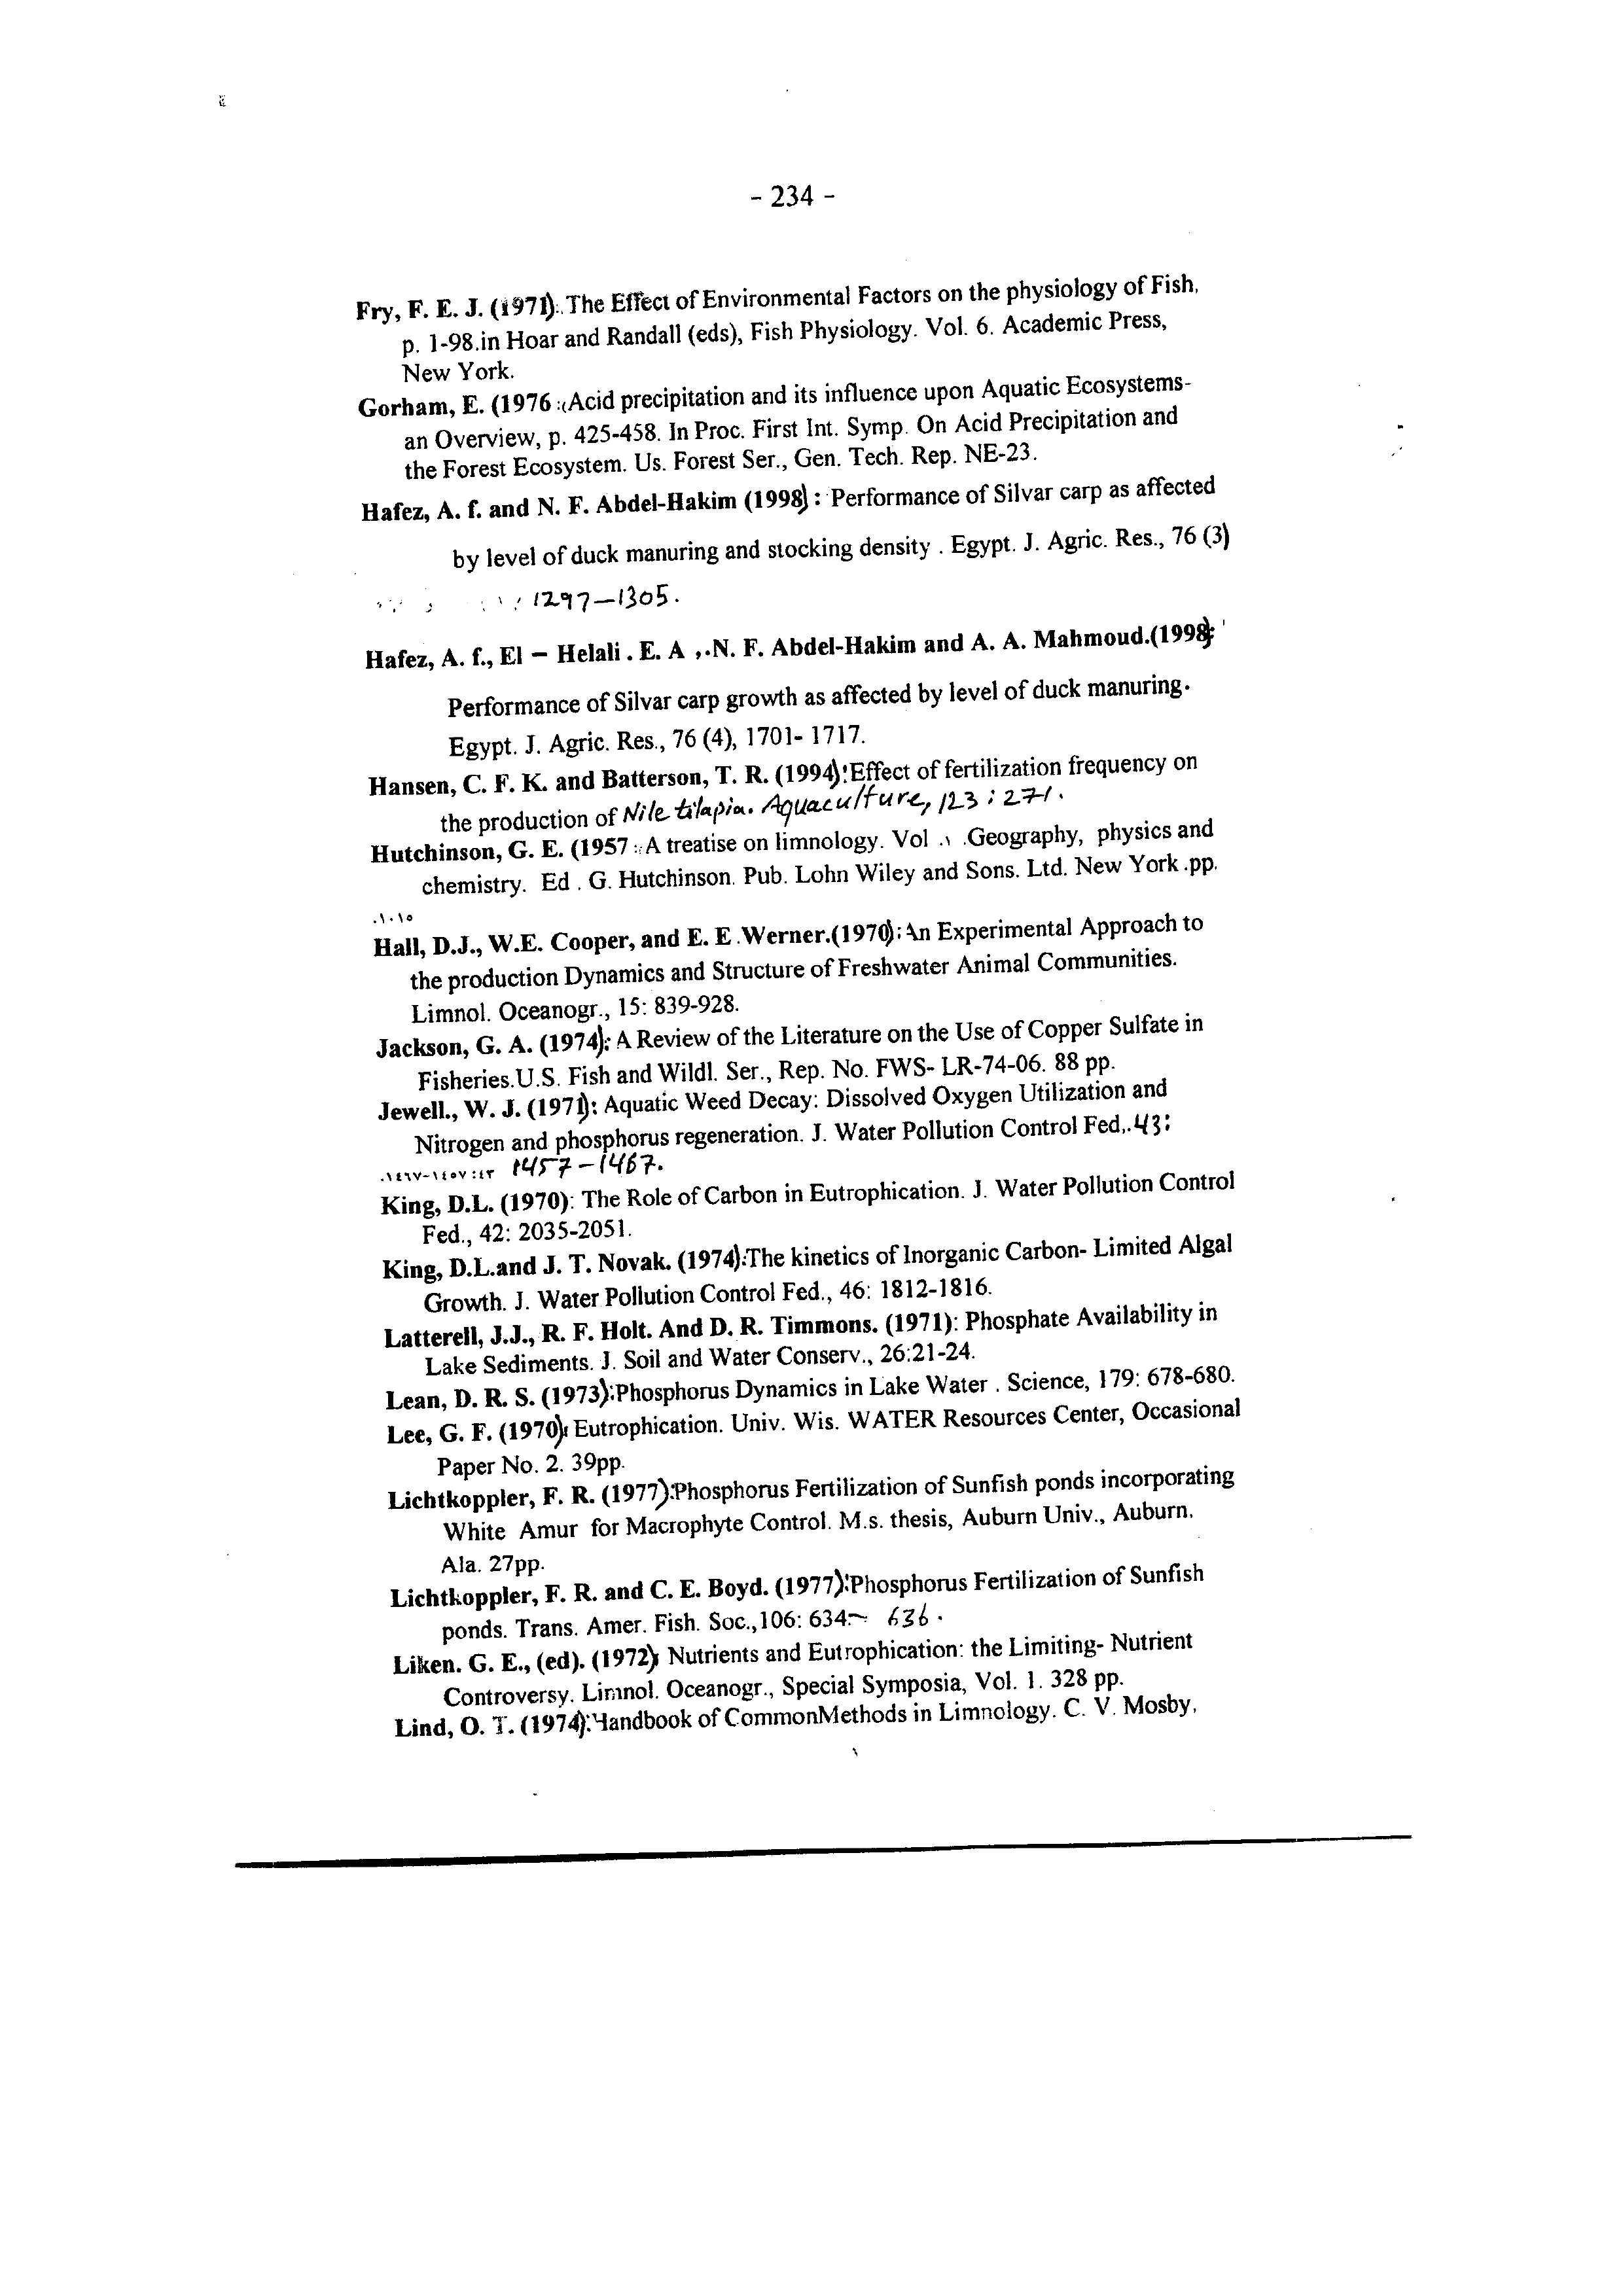 - 234 -
Fry, F. E. J. (1971): The Effect of Environmental Factors on the physiology of Fish,
p. 1-98.in Hoar and Randall (eds), Fish Physiology. Vol. 6. Academic Press,
New York.
Gorham, E. (1976 :(Acid precipitation and its influence upon Aquatic Ecosystems-
an Overview, p. 425-458. In Proc. First Int. Symp. On Acid Precipitation and
the Forest Ecosystem. Us. Forest Ser., Gen. Tech. Rep. NE-23.
Hafez, A. f. and N. F. Abdel-Hakim (1998) : Performance of Silvar carp as affected
by level of duck manuring and stocking density . Egypt. J. Agric. Res., 76 (3)
1297-1305.
Hafez, A. f., El – Helali . E. A ,.N. F. Abdel-Hakim and A. A. Mahmoud.(1998):
Performance of Silvar carp growth as affected by level of duck manuring.
Egypt. J. Agric. Res., 76 (4), 1701- 1717.
Hansen, C. F. K. and Batterson, T. R. (1994):Effect of fertilization frequency on
the production of Nile tilapia. Aquaculture, 123 : 271.
Hutchinson, G. E. (1957 :A treatise on limnology. Vol .١ .Geography, physics and
chemistry. Ed . G. Hutchinson. Pub. Lohn Wiley and Sons. Ltd. New York .pp.
.١٠١٥
Hall, D.J., W.E. Cooper, and E. E .Werner.(1970): An Experimental Approach to
the production Dynamics and Structure of Freshwater Animal Communities.
Limnol. Oceanogr., 15: 839-928.
Jackson, G. A. (1974): A Review of the Literature on the Use of Copper Sulfate in
Fisheries.U.S. Fish and Wildl. Ser., Rep. No. FWS- LR-74-06. 88 pp.
Jewell., W. J. (1971): Aquatic Weed Decay: Dissolved Oxygen Utilization and
Nitrogen and phosphorus regeneration. J. Water Pollution Control Fed,.43:
.١٤٦٧-١٤٥٧ :٤٣ 1457-1467.
King, D.L. (1970): The Role of Carbon in Eutrophication. J. Water Pollution Control
Fed., 42: 2035-2051.
King, D.L.and J. T. Novak. (1974):The kinetics of Inorganic Carbon- Limited Algal
Growth. J. Water Pollution Control Fed., 46: 1812-1816.
Latterell, J.J., R. F. Holt. And D. R. Timmons. (1971): Phosphate Availability in
Lake Sediments. J. Soil and Water Conserv., 26:21-24.
Lean, D. R. S. (1973):Phosphorus Dynamics in Lake Water . Science, 179: 678-680.
Lee, G. F. (1970): Eutrophication. Univ. Wis. WATER Resources Center, Occasional
Paper No. 2. 39pp.
Lichtkoppler, F. R. (1977):Phosphorus Fertilization of Sunfish ponds incorporating
White Amur for Macrophyte Control. M.s. thesis, Auburn Univ., Auburn.
Ala. 27pp.
Lichtkoppler, F. R. and C. E. Boyd. (1977):Phosphorus Fertilization of Sunfish
ponds. Trans. Amer. Fish. Soc.,106: 634- 636.
Liken. G. E., (ed). (1972): Nutrients and Eutrophication: the Limiting- Nutrient
Controversy. Limnol. Oceanogr., Special Symposia, Vol. 1. 328 pp.
Lind, O. T. (1974):Handbook of CommonMethods in Limnology. C. V. Mosby,